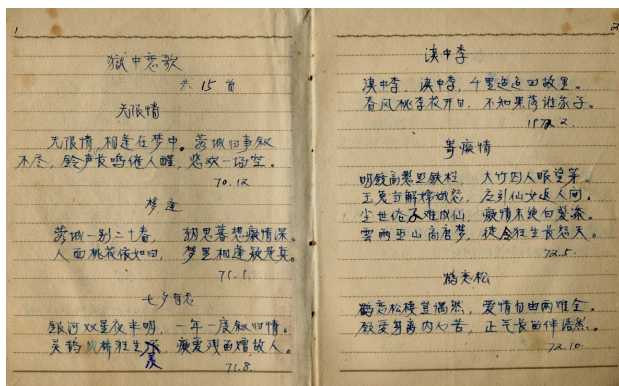 1
狱中恋歌
共15首
无限情
无限情,相逢在梦中。蓉城旧事叙
不尽,铃声长鸣催人醒,悲欢一场空。
70.12
梦逢
蓉城一别二十春,胡思暮想癡情深。
人面桃花依如旧,梦里相逢疑是真。
71.1.
七夕有恋
银河双星夜半明,一年一度叙旧情。
吴鹊成桥狂生
癡爱浅面嫦故人。
71.8.
2
滇中李
滇中李,滇中李,千里迢迢回故里。
春风桃李花开日,不知果落谁家子。
1972.2.
寄癡情
明镜高悬思铁栏,大竹四人眼望第。
玉兔当解嫦娥怨,应引仙女返人间。
尘世俗不难成仙,癡情未绝白发添。
云雨巫山高唐梦,徒令狂生长怨天。
72.5.
鹤恋松
鹤恋松楼岂偶然,爱情自由两难全。
欲爱身离内心苦,正气长留伴浩然。
72.10.